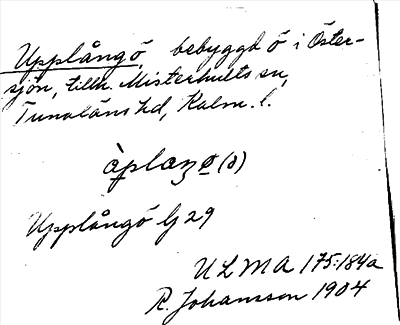 Upplångö, bebyggd ö i Öster-
sjön, tillh. Misterhults sn,
Tunaläns hd, Kalm. l.
Upplångö lj 29
ULMA 175:184a
R. Johansson 1904